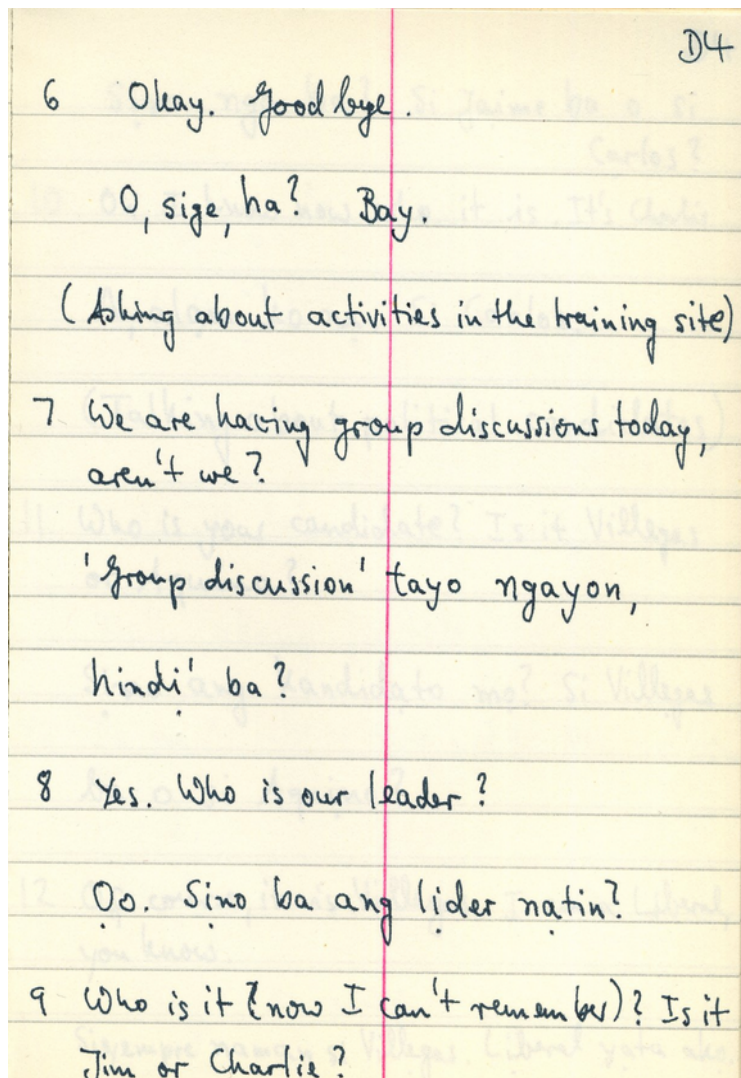 D4
6 Okay. Goodbye.
O, sige, ha? Bay.
(Asking about activities in the training site)
7 We are having group discussions today,
aren't we?
'Group discussion' tayo ngayon,
hindi' ba?
8 Yes. Who is our leader?
Oo. Sino ba ang lider natin?
9 Who is it (now I can't remember)? Is it
Jim or Charlie?